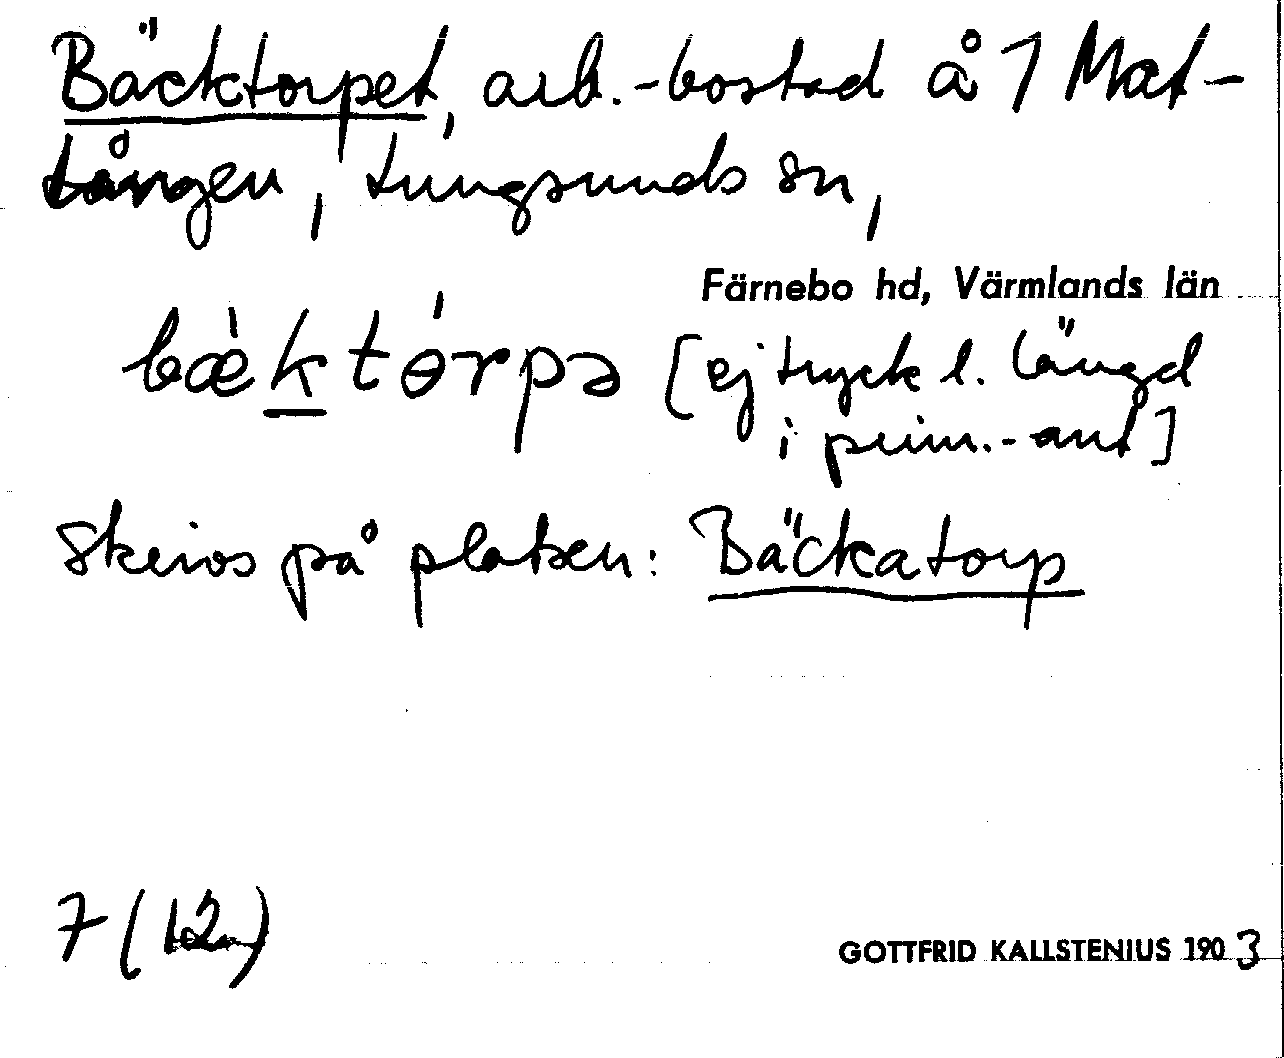 Bäcktorpet, arb.-bostad å 1 Mat-
tången, Lungsunds sn,
Färnebo hd, Värmlands län
bæ̀którpə [ej tryck l. längd
i prim.-ant]
Skrivs på platsen: Bäckatorp
7 (12)
GOTTFRID KALLSTENIUS 1903